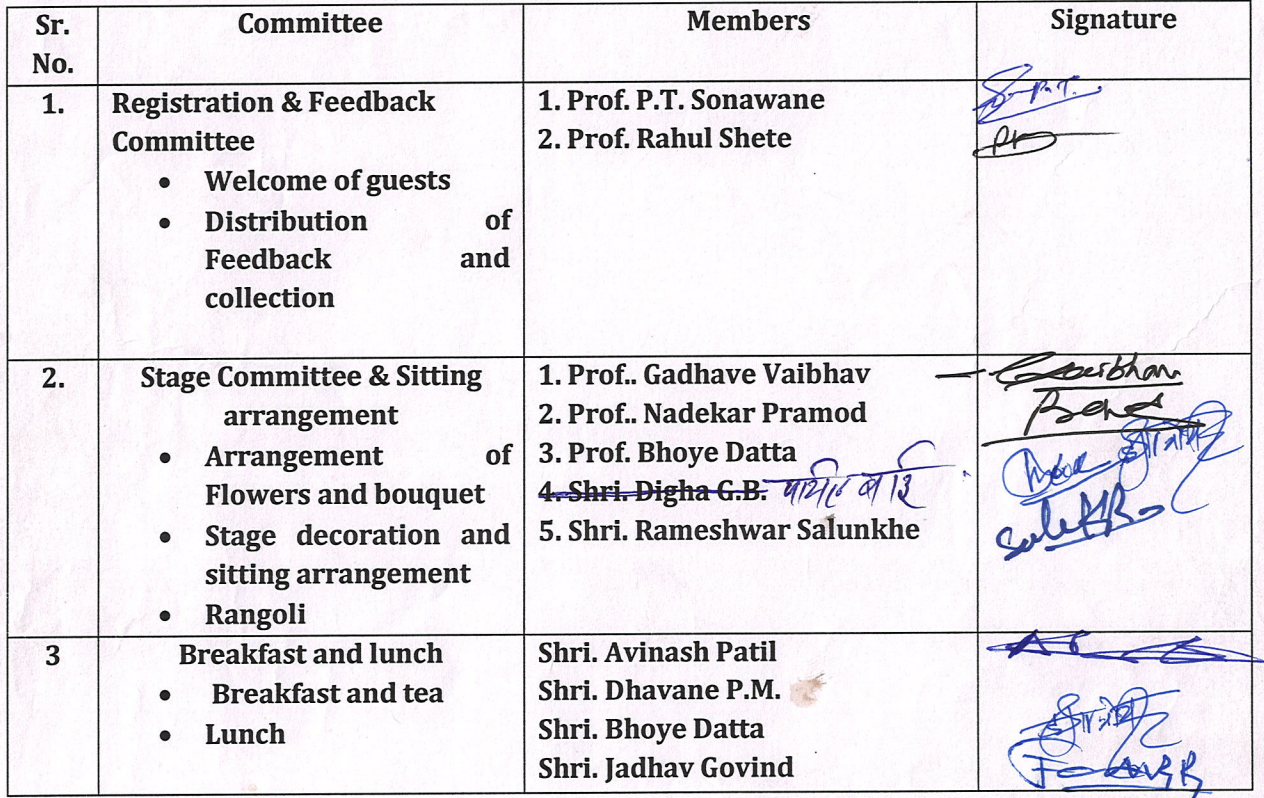 Sr. No. Committee Members Signature
1. Registration & Feedback Committee
• Welcome of guests
• Distribution of Feedback and collection
1. Prof. P.T. Sonawane
2. Prof. Rahul Shete
2. Stage Committee & Sitting arrangement
• Arrangement of Flowers and bouquet
• Stage decoration and sitting arrangement
• Rangoli
1. Prof.. Gadhave Vaibhav
2. Prof.. Nadekar Pramod
3. Prof. Bhoye Datta
4. Shri. Digha G.B.
5. Shri. Rameshwar Salunkhe
3 Breakfast and lunch
• Breakfast and tea
• Lunch
Shri. Avinash Patil
Shri. Dhavane P.M.
Shri. Bhoye Datta
Shri. Jadhav Govind